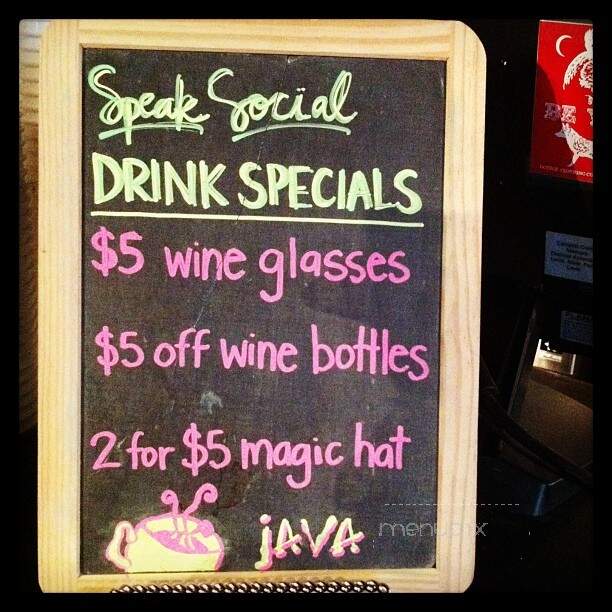 Speak Social
DRINK SPECIALS
$5 wine glasses
$5 off wine bottles
2 for $5 magic hat
jAVA
menupix
BE